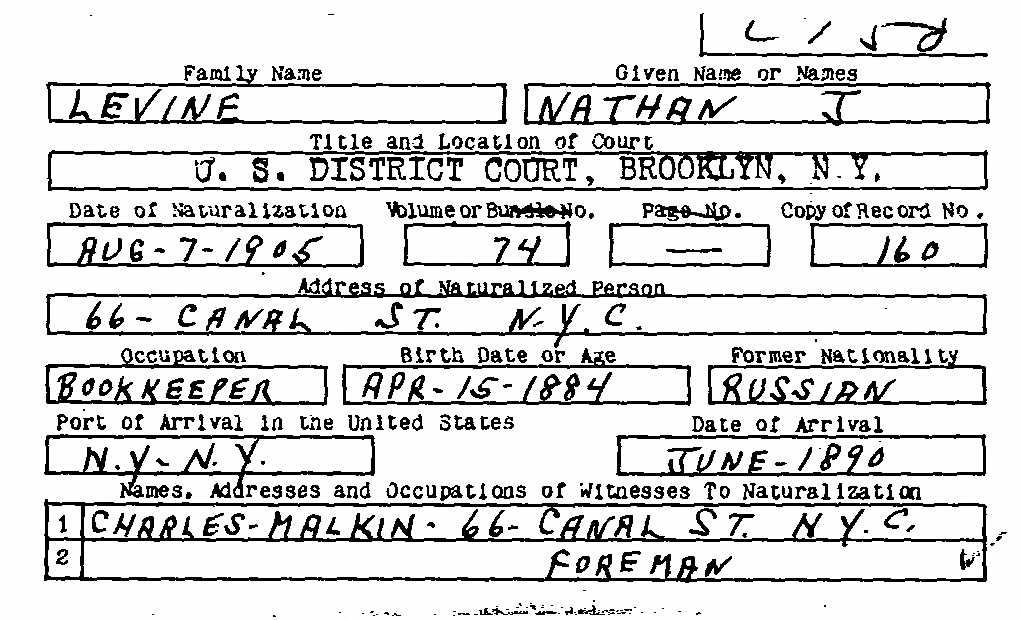 L 150
Family Name Given Name or Names
LEVINE NATHAN J
Title and Location of Court
U. S. DISTRICT COURT, BROOKLYN, N.Y.
Date of Naturalization Volume or Bundle No. Page No. Copy of Record No.
AUG-7-1905 74 — 160
Address of Naturalized Person
66- CANAL ST. N.Y.C.
Occupation Birth Date or Age Former Nationality
BOOKKEEPER APR-15-1884 RUSSIAN
Port of Arrival in the United States Date of Arrival
N.Y- N.Y. JUNE-1890
Names, Addresses and Occupations of Witnesses To Naturalization
1 CHARLES-MALKIN- 66- CANAL ST. N Y.C.
2 FOREMAN W